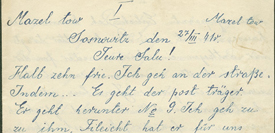 Mazel tow I Mazel tow
Sosnowitz den 27/III 41.
Teure Sala!
Halb zehn früe. Ich geh an der straße.
Indem... Es geht der post träger.
Er geht herunter № 9. Ich geh zu
zu ihm, Fileicht hat er für uns